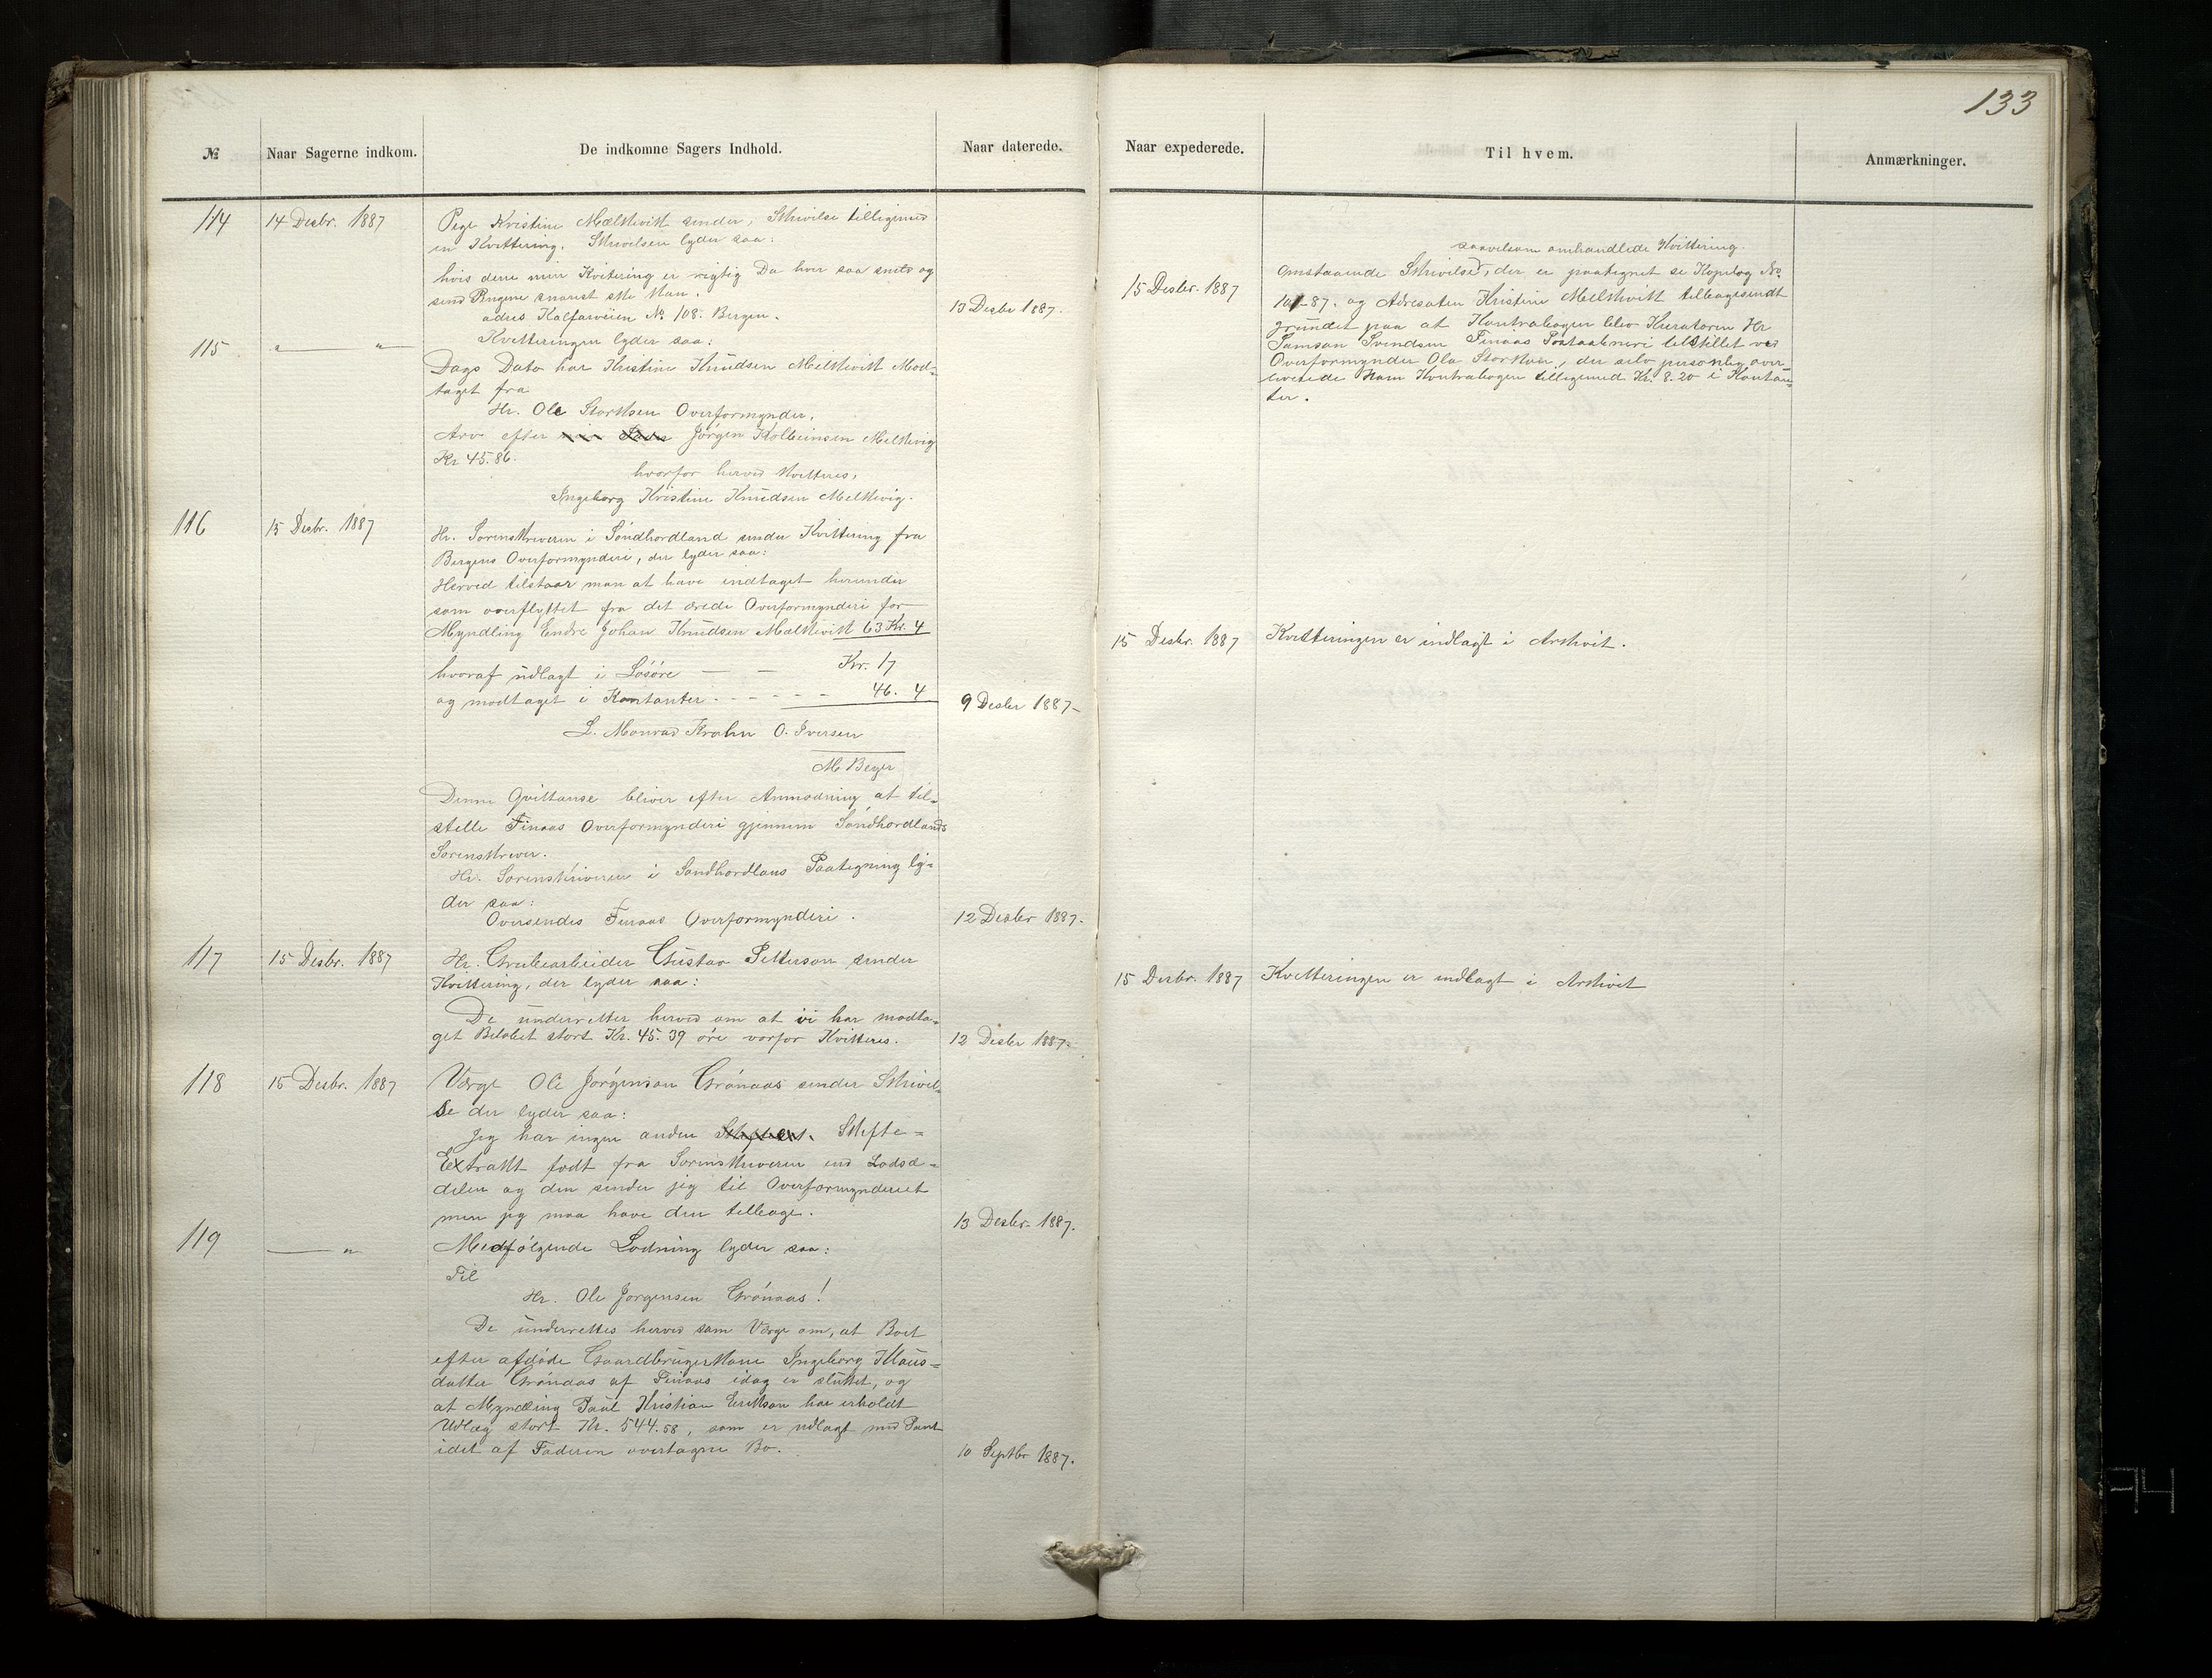 133
№ Naar Sagerne indkom. De indkomne Sagers Indhold. Naar daterede. Naar expederede. Til hvem. Anmærkninger.
114 14 Desbr. 1887 Pige Kristine Mælkevikk sender, Skrivelse tilligemed
en Kvittering. Skrivelsen lyder saa:
hvis dere min Kvitering er rigtig Da hver saa snild og
send Pengene snarest ske kan.
adres Kalfarveien № 108. Bergen. 13 Desbr 1887.
115 " — " Kvitteringen lyder saa:
Dags Dato har Kristine Knudsen Melkevikk Mod-
taget fra
Hr. Ole Storksen Overformynder.
Arv efter Jørgen Kolbeinsen Melkevig
Kr 45.86.
hvorfor herved kvitteres,
Ingeborg Kristine Knudsen Melkevig.
116 15 Desbr. 1887 Hr. Sorenskriveren i Söndhordland sender Kvittering fra
Bergens Overformynderi, der lyder saa:
Herved tilstaar man at have indtaget herunder
som overflyttet fra det ærede Overformynderi for
Myndling Endre Johan Knudsen Mælkevikk 63 Kr. 4
hvoraf udlagt i Lösöre — — Kr. 17
og modtaget i Kontanter - - - - - 46. 4
9 Desbr 1887-
L. Monrad Krohn O. Iversen
M. Beyer
Denne Qvittanse bliver efter Anmodning at til-
stelle Finaas Overformynderi gjennem Söndhordlands
Sorenskriver.
Hr. Sorenskriveren i Sondhordlans Paategning ly-
der saa:
Oversendes Finaas Overformynderi. 12 Desbr 1887.
117 15 Desbr. 1887 Hr. Grubearbeider Gustav Petterson sender
Kvittering, der lyder saa:
De underretter herved om at vi har modta-
get Belobet stort Kr. 45.39 öre vorfor Kvitteres. 12 Desbr 1887.
118 15 Desbr. 1887 Værge Ole Jörgenson Grönaas sender Skrivel-
se der lyder saa:
Jeg har ingen anden Skifte-
Extrakt fodt fra Sorenskriveren end Lodse-
delen og den sender jeg til Overformynderiet
men jeg maa have den tilbage. 13 Desbr. 1887.
119 — " Medfölgende Lodning lyder saa:
Til
Hr. Ole Jorgensen Grönaas!
De underrettes herved som Værge om, at Boet
efter afdöde Gaardbrugerkone Ingeborg Klaus-
datter Grönaas af Finaas idag er sluttet, og
at Myndling Paul Kristian Erikson har erholdt
Udlæg stort Kr. 544.58, som er udlagt med Pant
idet af Faderen overtagne Bo. 10 Septbr 1887.
saavelsom omhandlede Kvittering.
15 Desbr. 1887 Omstaaende Skrivelse, der er paategnet se Kopibog №
101-87. og Adresaten Kristine Melkevikk tilbagesendt
grundet paa at Kontrabogen blev Kuratoren Hr
Samson Svendsen Finaas Postaabneri tilstillet ved
Overformynder Ola Storksen, der selv personlig over-
leverede ham Kontrabogen tilligemed Kr. 8.20 i Kontan-
ter.
15 Desbr. 1887 Kvitteringen er indlagt i Arkivit.
15 Desbr. 1887 Kvitteringen er indlagt i Arkivit